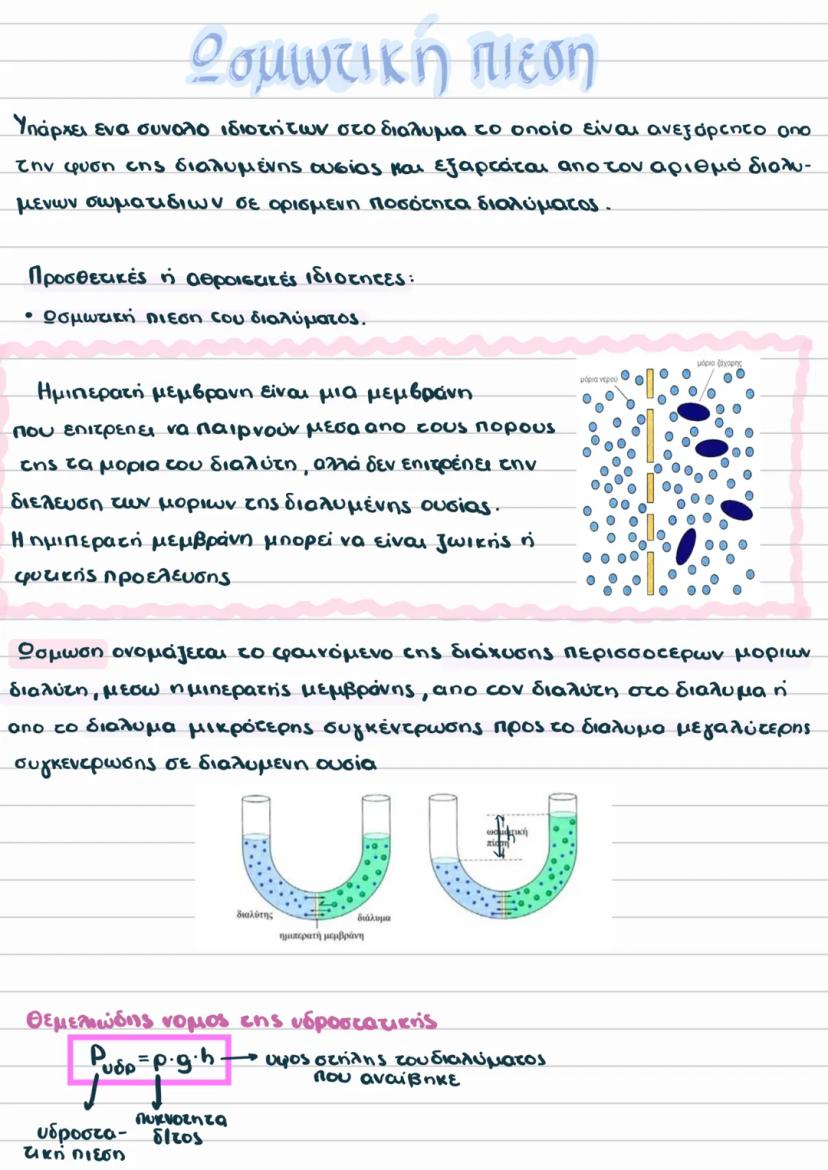 Ωσμωτική πιεση
Υπάρχει ενα συνολο ιδιοτήτων στο διαλυμα το οποίο είναι ανεξάρτητο απο
την φυση της διαλυμένης ουσίας και εξαρτάται απο τον αριθμό διαλυ-
μενων σωματιδιων σε ορισμενη ποσότητα διαλύματος.
Προσθετικές ή αθροιστικές ιδιοτητες:
• Ωσμωτική πιεση του διαλύματος.
Ημιπερατή μεμβρανη είναι μια μεμβράνη
που επιτρεπει να παιρνούν μεσα απο τους πορους
της τα μορια του διαλύτη, αλλά δεν επιτρέπει την
διελευση των μοριων της διαλυμένης ουσίας.
Η ημιπερατή μεμβράνη μπορεί να είναι ζωικής ή
φυτικής προελευσης
μόρια νερού
μόρια ζάχαρης
Ωσμωση ονομάζεται το φαινόμενο της διάχυσης περισσοτερων μοριων
διαλύτη, μεσω ημιπερατής μεμβράνης, απο τον διαλύτη στο διαλυμα ή
απο το διαλυμα μικρότερης συγκέντρωσης προς το διαλυμα μεγαλύτερης
συγκεντρωσης σε διαλυμενη ουσία
διαλύτης
διάλυμα
ημιπερατή μεμβράνη
ωσμωτική
πίεση
h
Θεμελιώδης νομος της υδροστατικής
Pυδρ = ρ·g·h → υψος στήλης του διαλύματος
που αναίβηκε
πυκνοτητα
δ/τος
υδροστα-
τική πιεση